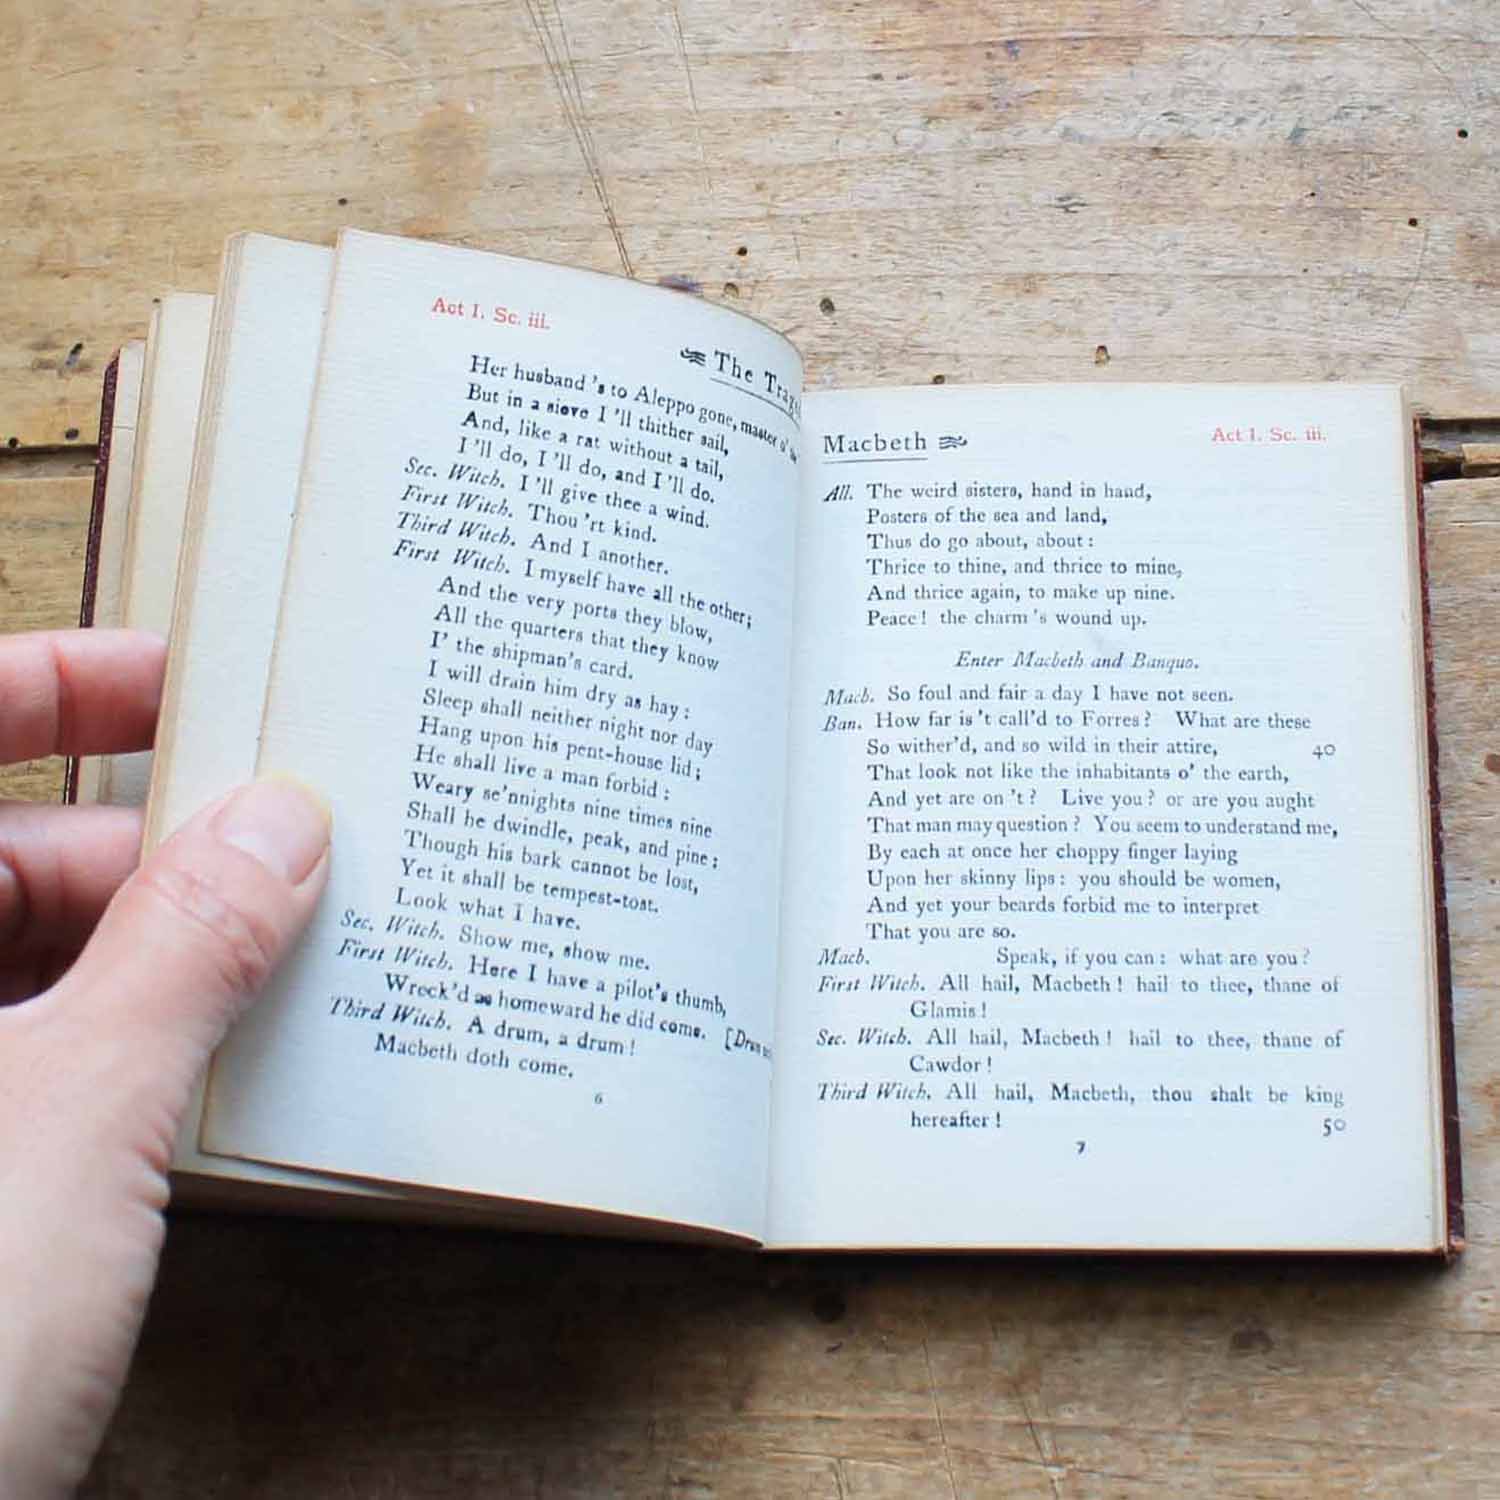 Act I. Sc. iii.
The
Her husband 's to Aleppo gone, master o'
But in a sieve I 'll thither sail,
And, like a rat without a tail,
I 'll do, I 'll do, and I 'll do.
Sec. Witch. I 'll give thee a wind.
First Witch. Thou 'rt kind.
Third Witch. And I another.
First Witch. I myself have all the other;
And the very ports they blow,
All the quarters that they know
I' the shipman's card.
I will drain him dry as hay:
Sleep shall neither night nor day
Hang upon his pent-house lid;
He shall live a man forbid:
Weary se'nnights nine times nine
Shall he dwindle, peak, and pine:
Though his bark cannot be lost,
Yet it shall be tempest-tost.
Look what I have.
Sec. Witch. Show me, show me.
First Witch. Here I have a pilot's thumb,
Wreck'd as homeward he did come. [Drum
Third Witch. A drum, a drum!
Macbeth doth come.
6
Macbeth
Act I. Sc. iii.
All. The weird sisters, hand in hand,
Posters of the sea and land,
Thus do go about, about:
Thrice to thine, and thrice to mine,
And thrice again, to make up nine.
Peace! the charm 's wound up.
Enter Macbeth and Banquo.
Macb. So foul and fair a day I have not seen.
Ban. How far is 't call'd to Forres? What are these
So wither'd, and so wild in their attire, 40
That look not like the inhabitants o' the earth,
And yet are on 't? Live you? or are you aught
That man may question? You seem to understand me,
By each at once her choppy finger laying
Upon her skinny lips: you should be women,
And yet your beards forbid me to interpret
That you are so.
Macb. Speak, if you can: what are you?
First Witch. All hail, Macbeth! hail to thee, thane of
Glamis!
Sec. Witch. All hail, Macbeth! hail to thee, thane of
Cawdor!
Third Witch. All hail, Macbeth, thou shalt be king
hereafter! 50
7